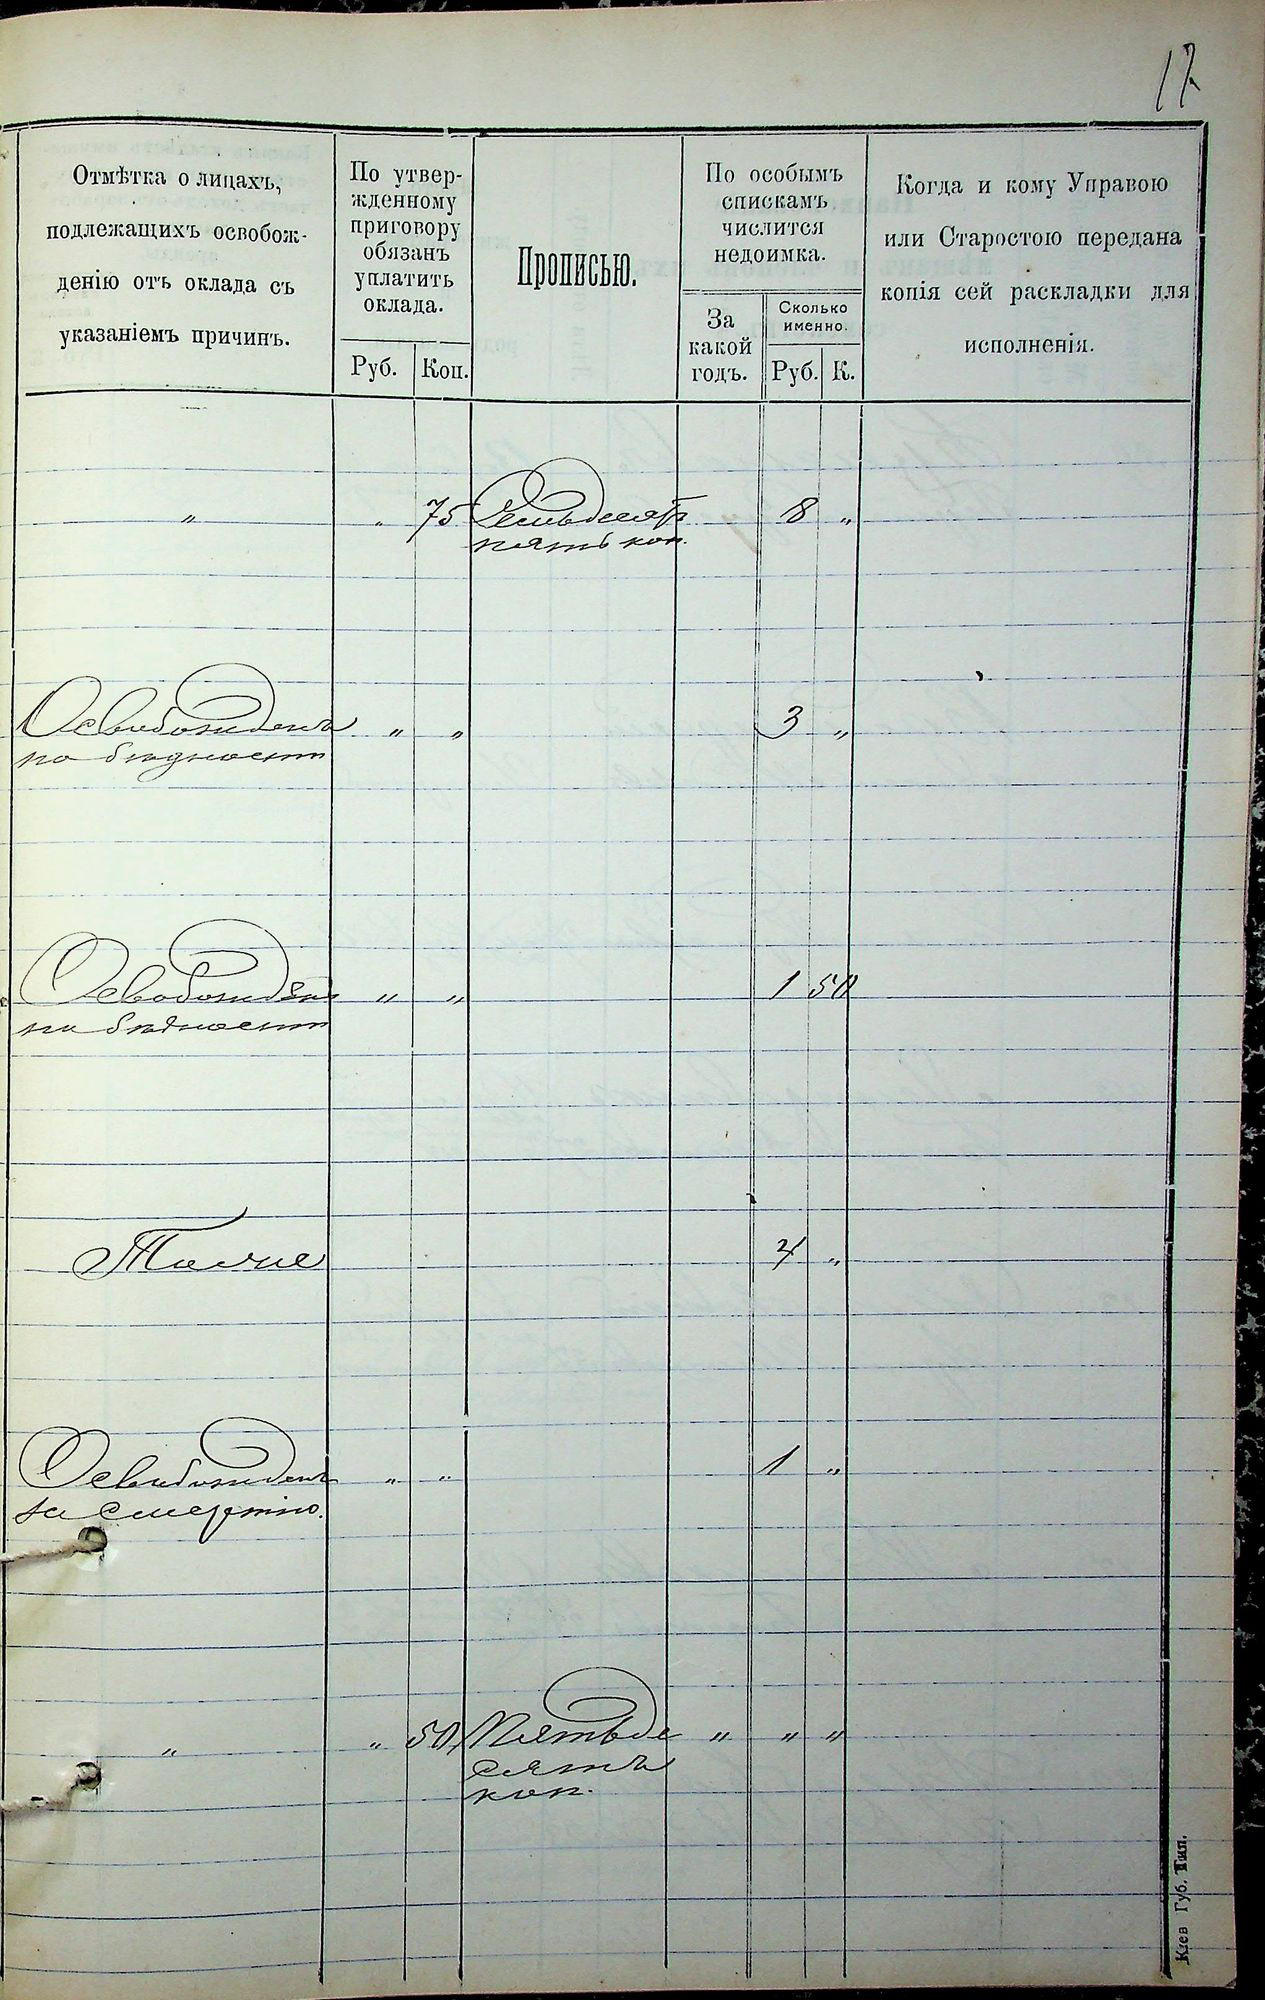 17
Отмѣтка о лицахъ,
подлежащихъ освобож-
денію отъ оклада съ
указаніемъ причинъ.
По утвер-
жденному
приговору
обязанъ
уплатить
оклада.
Руб. Коп.
Прописью.
По особымъ
спискамъ
числится
недоимка.
За
какой
годъ.
Сколько
именно.
Руб. К.
Когда и кому Управою
или Старостою передана
копія сей раскладки для
исполненія.
„ „ 75 Семьдесятъ 8 „
пять коп.
Освобожденъ „ „ 3 „
по бѣдности
Освобожденъ „ „ 1 50
по бѣдности
Тоже 4 „
Освобожденъ „ „ 1 „
за смертію.
„ „ 50 Пятьде „ „ „
сятъ
коп.
Кіев Губ. Тип.